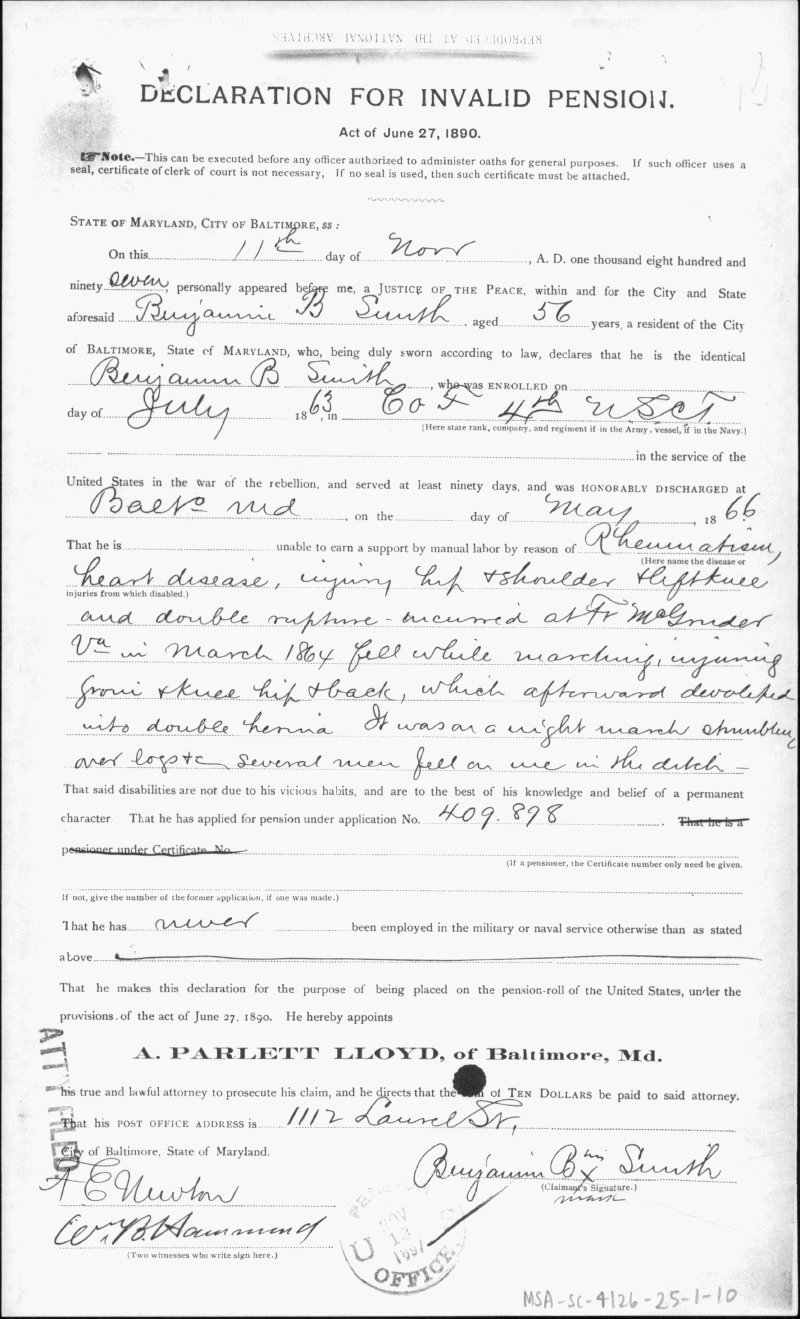 REPRODUCED AT THE NATIONAL ARCHIVES
DECLARATION FOR INVALID PENSION.
Act of June 27, 1890.
☞Note.—This can be executed before any officer authorized to administer oaths for general purposes. If such officer uses a
seal, certificate of clerk of court is not necessary, If no seal is used, then such certificate must be attached.
STATE OF MARYLAND, CITY OF BALTIMORE, ss:
On this 11th day of Novr, A. D. one thousand eight hundred and
ninety seven, personally appeared before me, a JUSTICE OF THE PEACE, within and for the City and State
aforesaid Benjamin B Smith, aged 56 years, a resident of the City
of BALTIMORE, State of MARYLAND, who, being duly sworn according to law, declares that he is the identical
Benjamin B Smith, who was ENROLLED on
day of July 1863, in Co F 4th U.S.C.T.
[Here state rank, company, and regiment if in the Army, vessel, if in the Navy.]
in the service of the
United States in the war of the rebellion, and served at least ninety days, and was HONORABLY DISCHARGED at
Balto Md, on the day of May, 1866
That he is unable to earn a support by manual labor by reason of Rheumatism,
(Here name the disease or
heart disease, injury hip & shoulder & left knee
injuries from which disabled.)
and double rupture - incurred at Ft McGruder
Va in March 1864 fell while marching, injuring
groin & knee hip & back, which afterward devoloped
into double hernia It was on a night march stumbling
over logs &c several men fell on me in the ditch —
That said disabilities are not due to his vicious habits, and are to the best of his knowledge and belief of a permanent
character. That he has applied for pension under application No. 409.898. That he is a
pensioner under Certificate No.
(If a pensioner, the Certificate number only need be given.
If not, give the number of the former application, if one was made.)
That he has never been employed in the military or naval service otherwise than as stated
above
That he makes this declaration for the purpose of being placed on the pension-roll of the United States, under the
provisions of the act of June 27, 1890. He hereby appoints
A. PARLETT LLOYD, of Baltimore, Md.
his true and lawful attorney to prosecute his claim, and he directs that the of TEN DOLLARS be paid to said attorney.
That his POST OFFICE ADDRESS is 1112 Laurel St,
City of Baltimore, State of Maryland.
ATTY FILED
Benjamin B his x Smith
(Claimant's Signature.)
mark
A E Newton
Wm B. Hammond
(Two witnesses who write sign here.)
U
NOV
13
1897
OFFICE
MSA-SC-4126-25-1-10